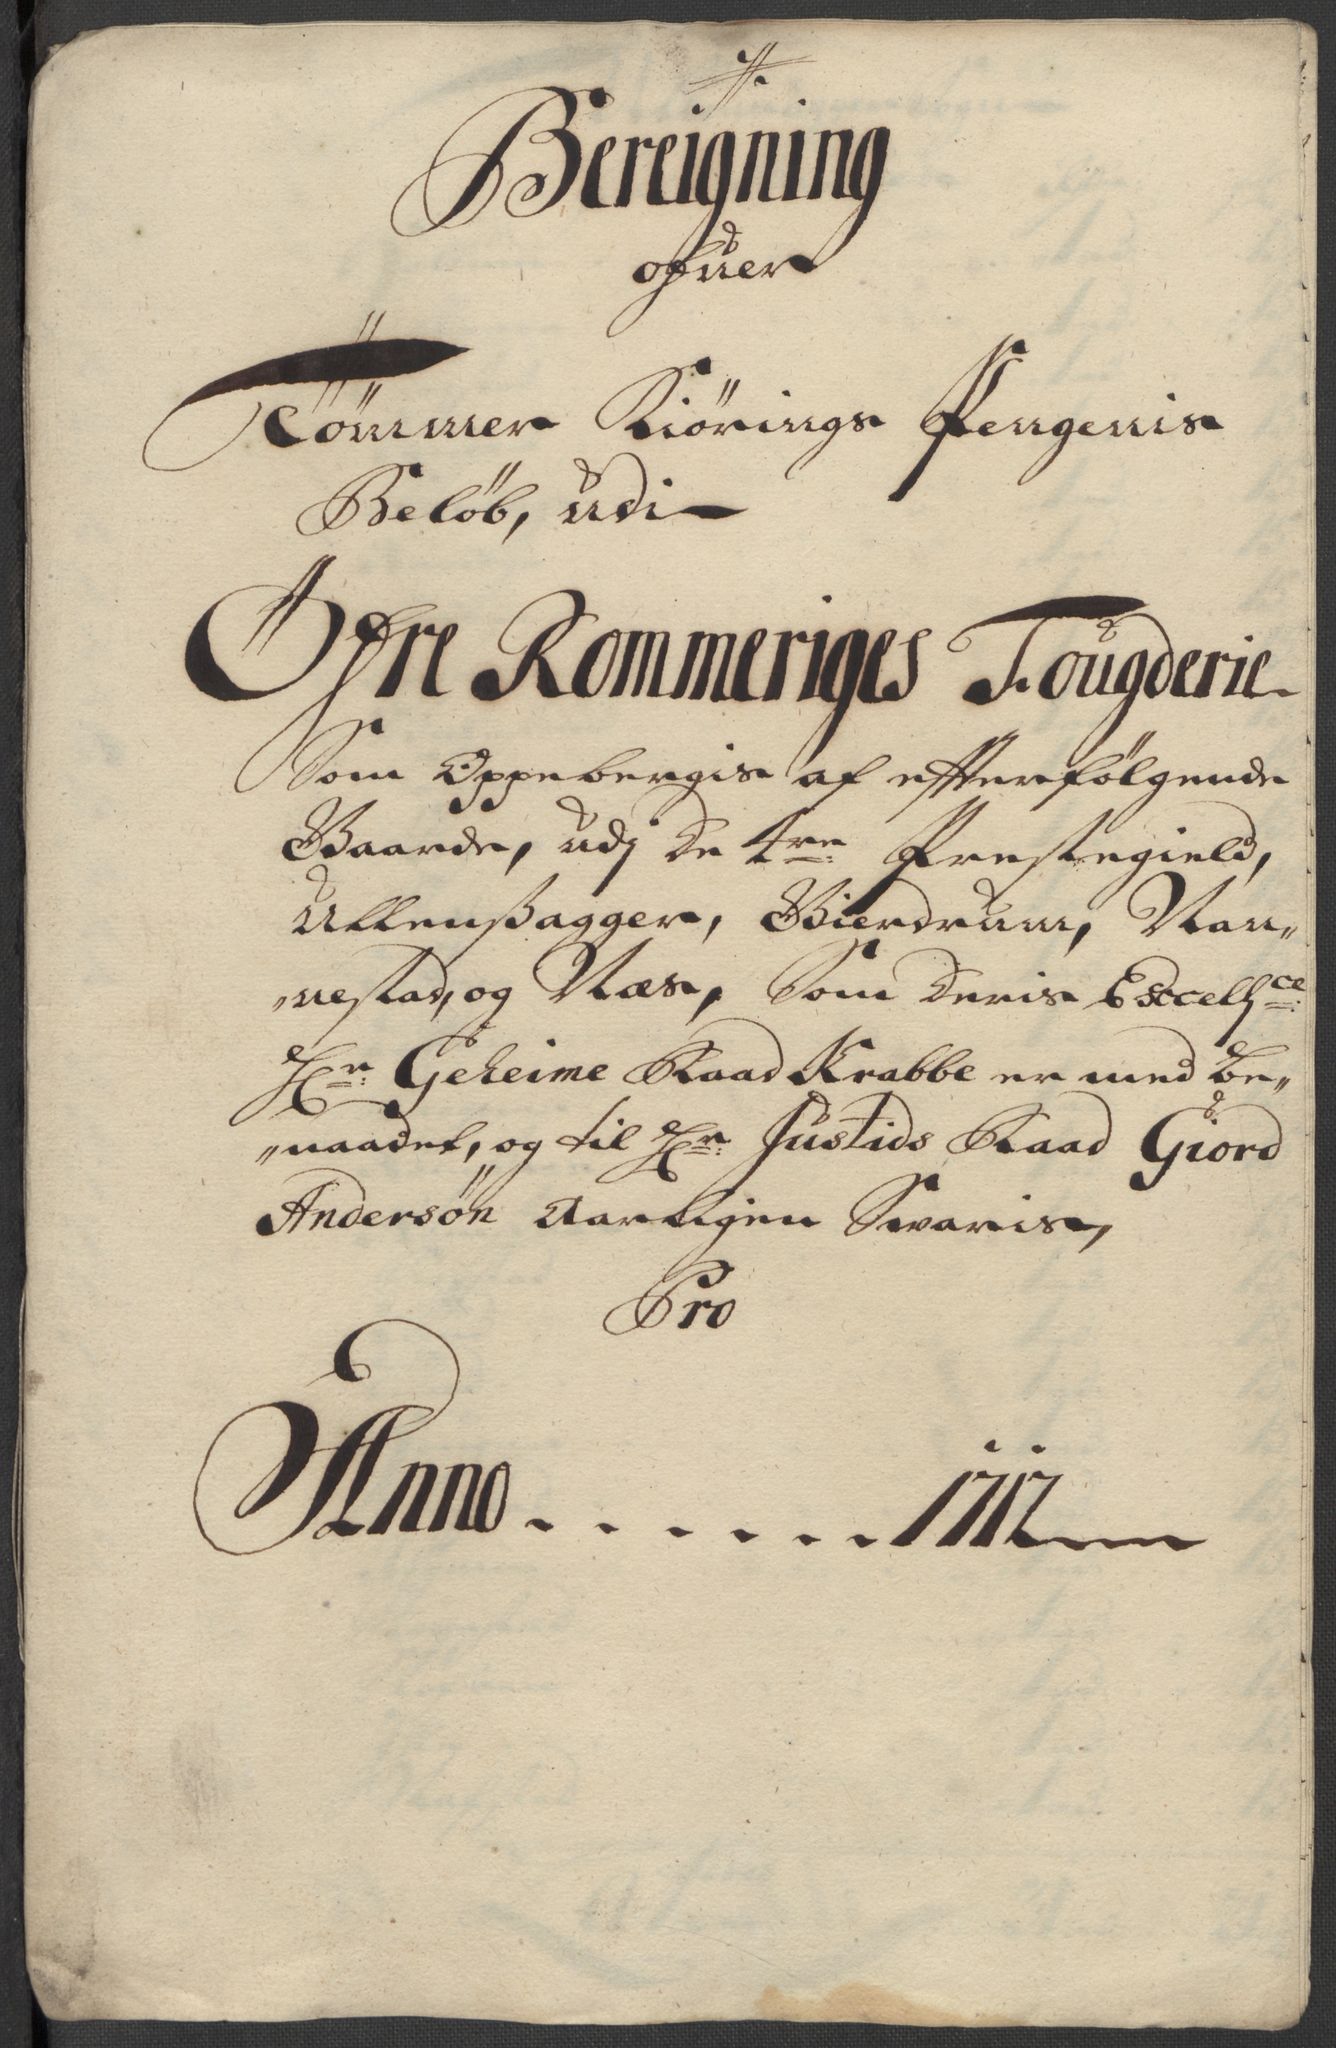 Bereigning
ofuer
Tömmer Kiörings Pengenis
Beløb, udi
Öfre Rommeriges Fougderie
Som Oppebergis af effterfölgende
Gaarde, udj de 4re Prestegield,
Ullensagger, Gierdrum, Nan„
„nestad, og Næs, Som deris Excellce
Hr Geheime Raad Krabbe er med be„
„naadet, og til Hr Justids Raad Giord
Andersøn Aarligen Svaris,
Pro
Anno . . . . . . 1712